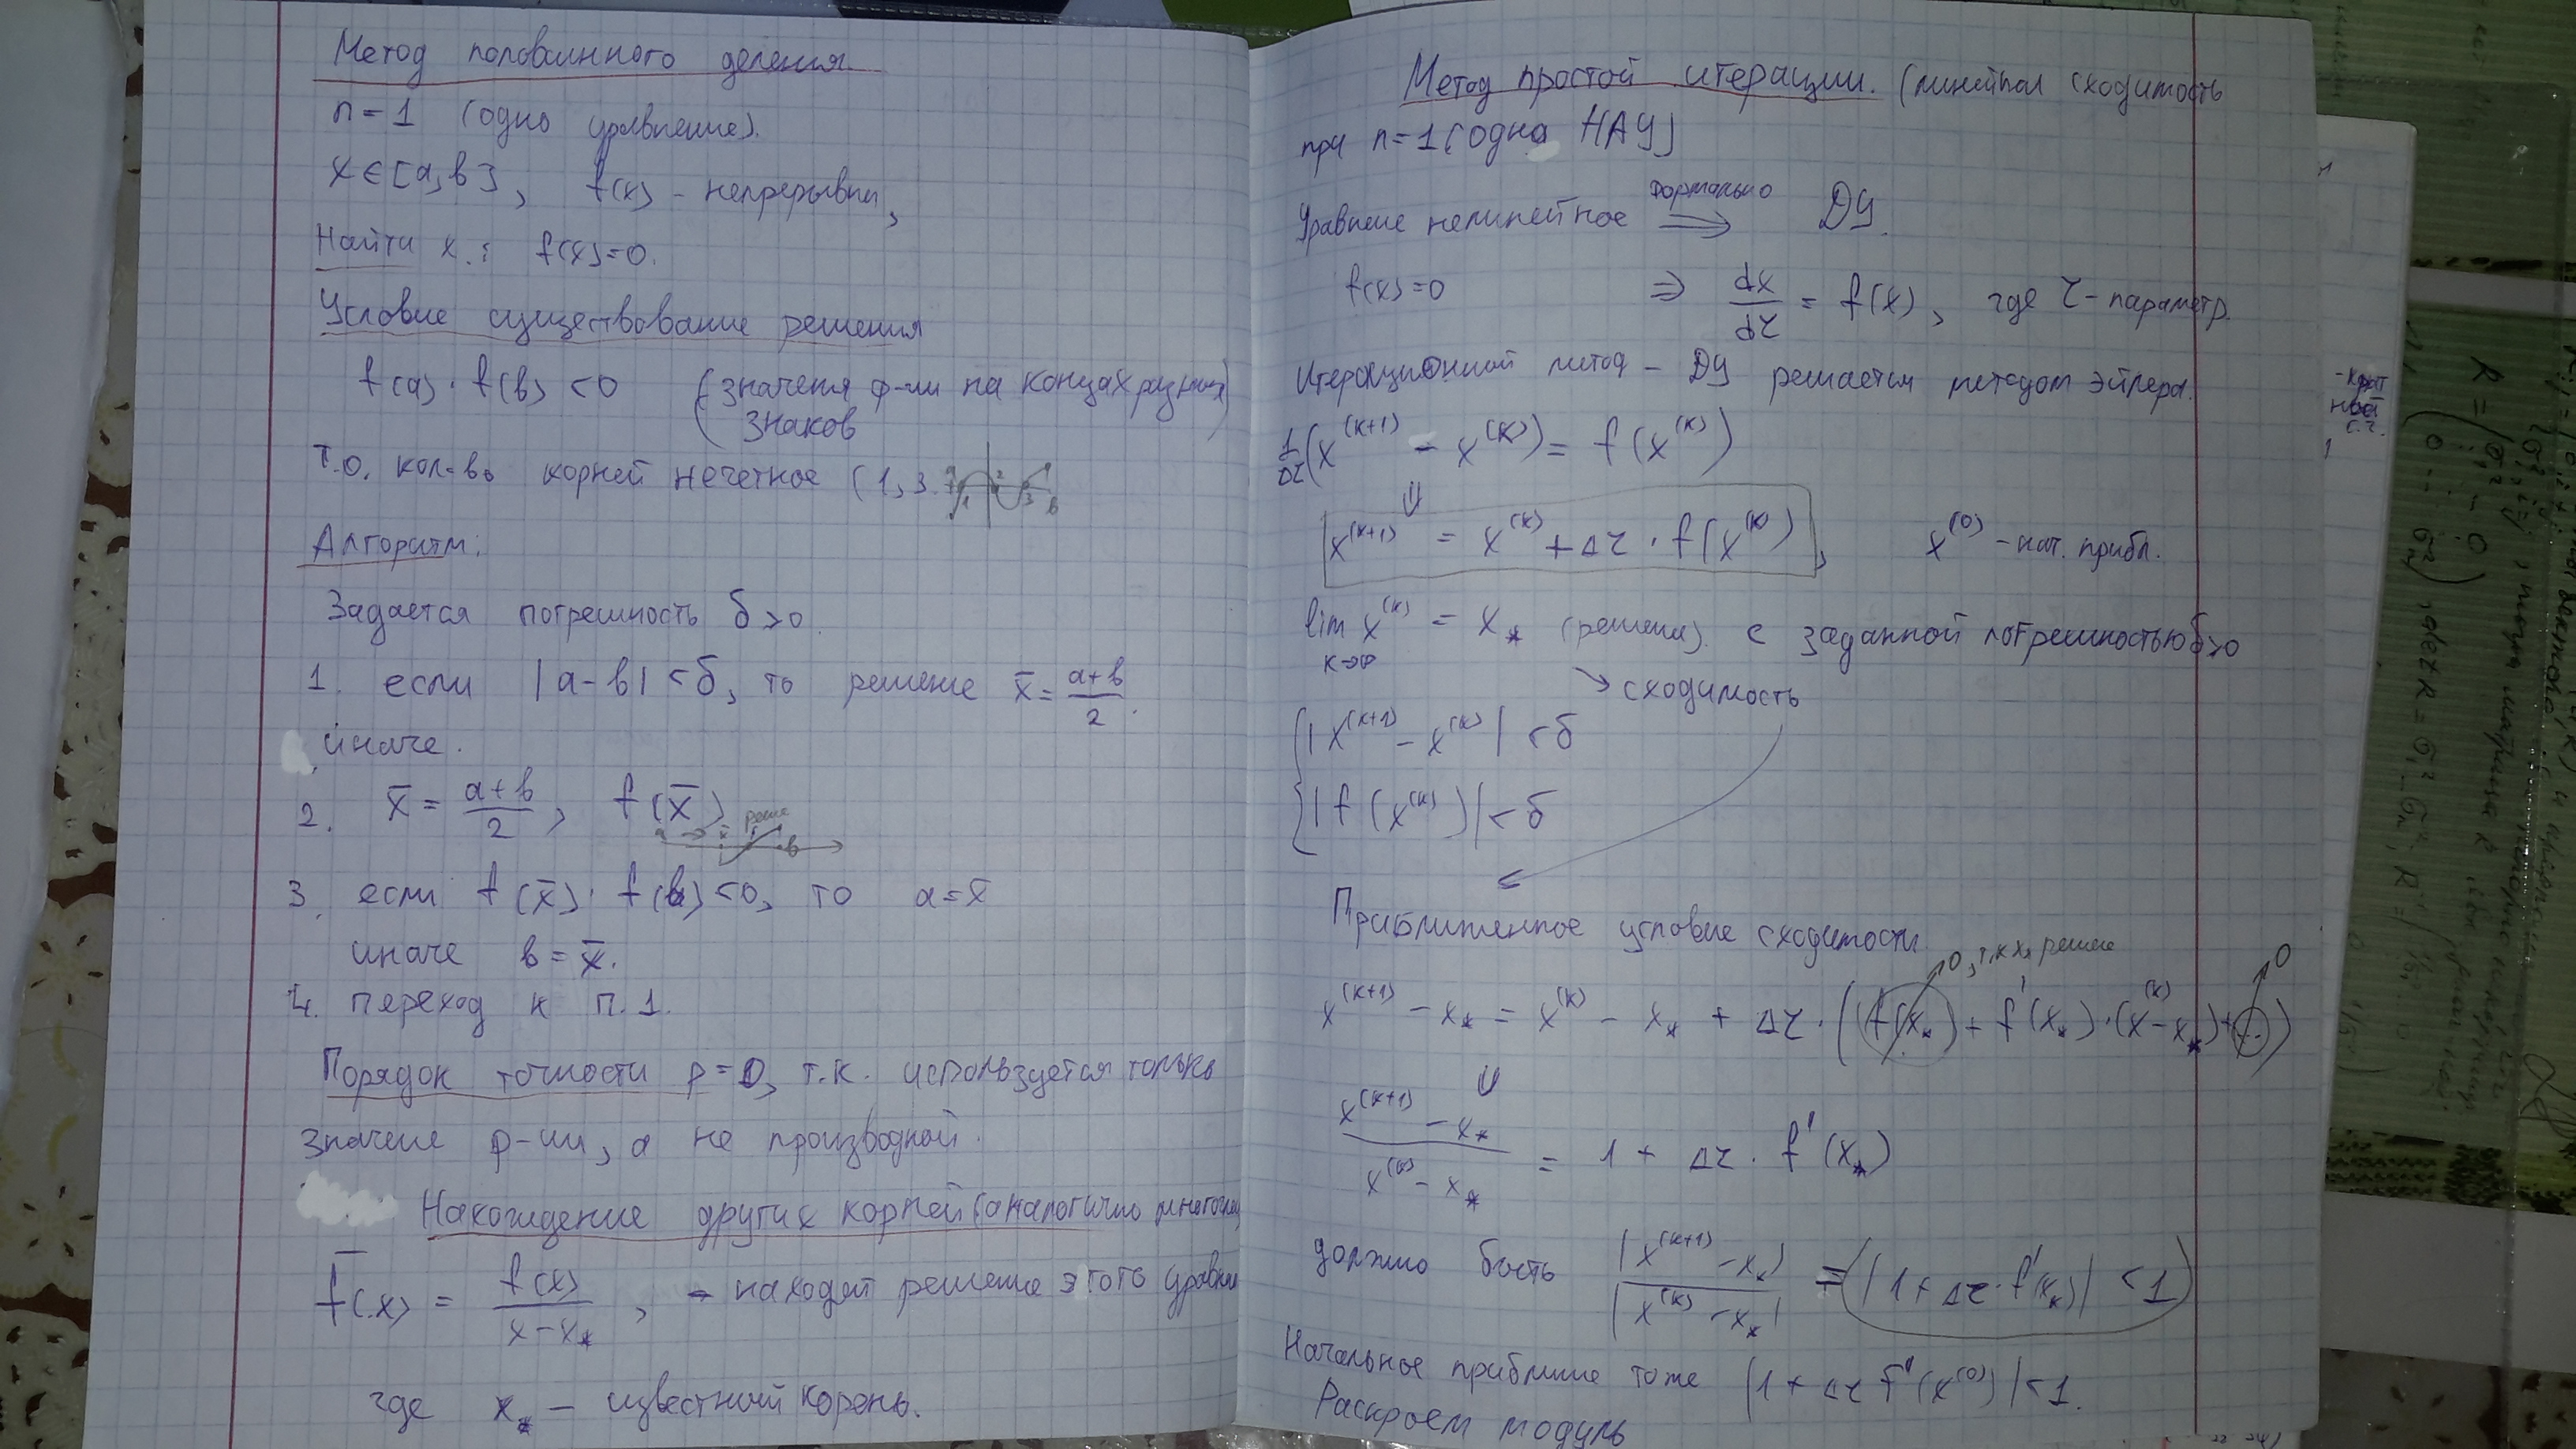 Метод половинного деления
n = 1 (одно уравнение).
x ∈ [a, b], f(x) - непрерывн,
Найти x: f(x) = 0.
Условие существование решения
f(a) · f(b) < 0 (значения ф-ии на концах разных знаков)
т.о. кол-во корней нечетное (1, 3
Алгоритм:
Задается погрешность δ > 0.
1. если |a - b| < δ, то решение x̄ = (a+b)/2.
иначе.
2. x̄ = (a+b)/2, f(x̄)
3. если f(x̄) · f(b) < 0, то a = x̄
иначе b = x̄.
4. переход к п. 1.
Порядок точности p = 0, т.к. используется только
значение ф-ии, а не производной.
Нахождение других корней (аналогично
f̄(x) = f(x)/(x - x*), → находят решение этого
где x* - известный корень.
Метод простой итерации. (линейная сходимость
при n = 1 (одна НАУ)
Уравнение нелинейное формально ⟹ ДУ.
f(x) = 0 ⇒ dx/dτ = f(x), где τ - параметр.
Итерационный метод - ДУ решается методом Эйлера.
1/Δτ (x^(k+1) - x^(k)) = f(x^(k))
⇓
x^(k+1) = x^(k) + Δτ · f(x^(k)), x^(0) - нач. прибл.
lim k→∞ x^(k) = x* (решение). с заданной погрешностью δ > 0
→ сходимость
{ |x^(k+1) - x^(k)| < δ
|f(x^(k))| < δ
Приближенное условие сходимости.
0, т.к. x* решение
0
x^(k+1) - x* = x^(k) - x* + Δτ · (f(x*) + f'(x*) · (x^(k) - x*) + (..))
⇓
(x^(k+1) - x*)/(x^(k) - x*) = 1 + Δτ · f'(x*)
должно быть |x^(k+1) - x*|/|x^(k) - x*| = |1 + Δτ · f'(x*)| < 1
Начальное приближение тоже |1 + Δτ f'(x^(0))| < 1.
Раскроем модуль